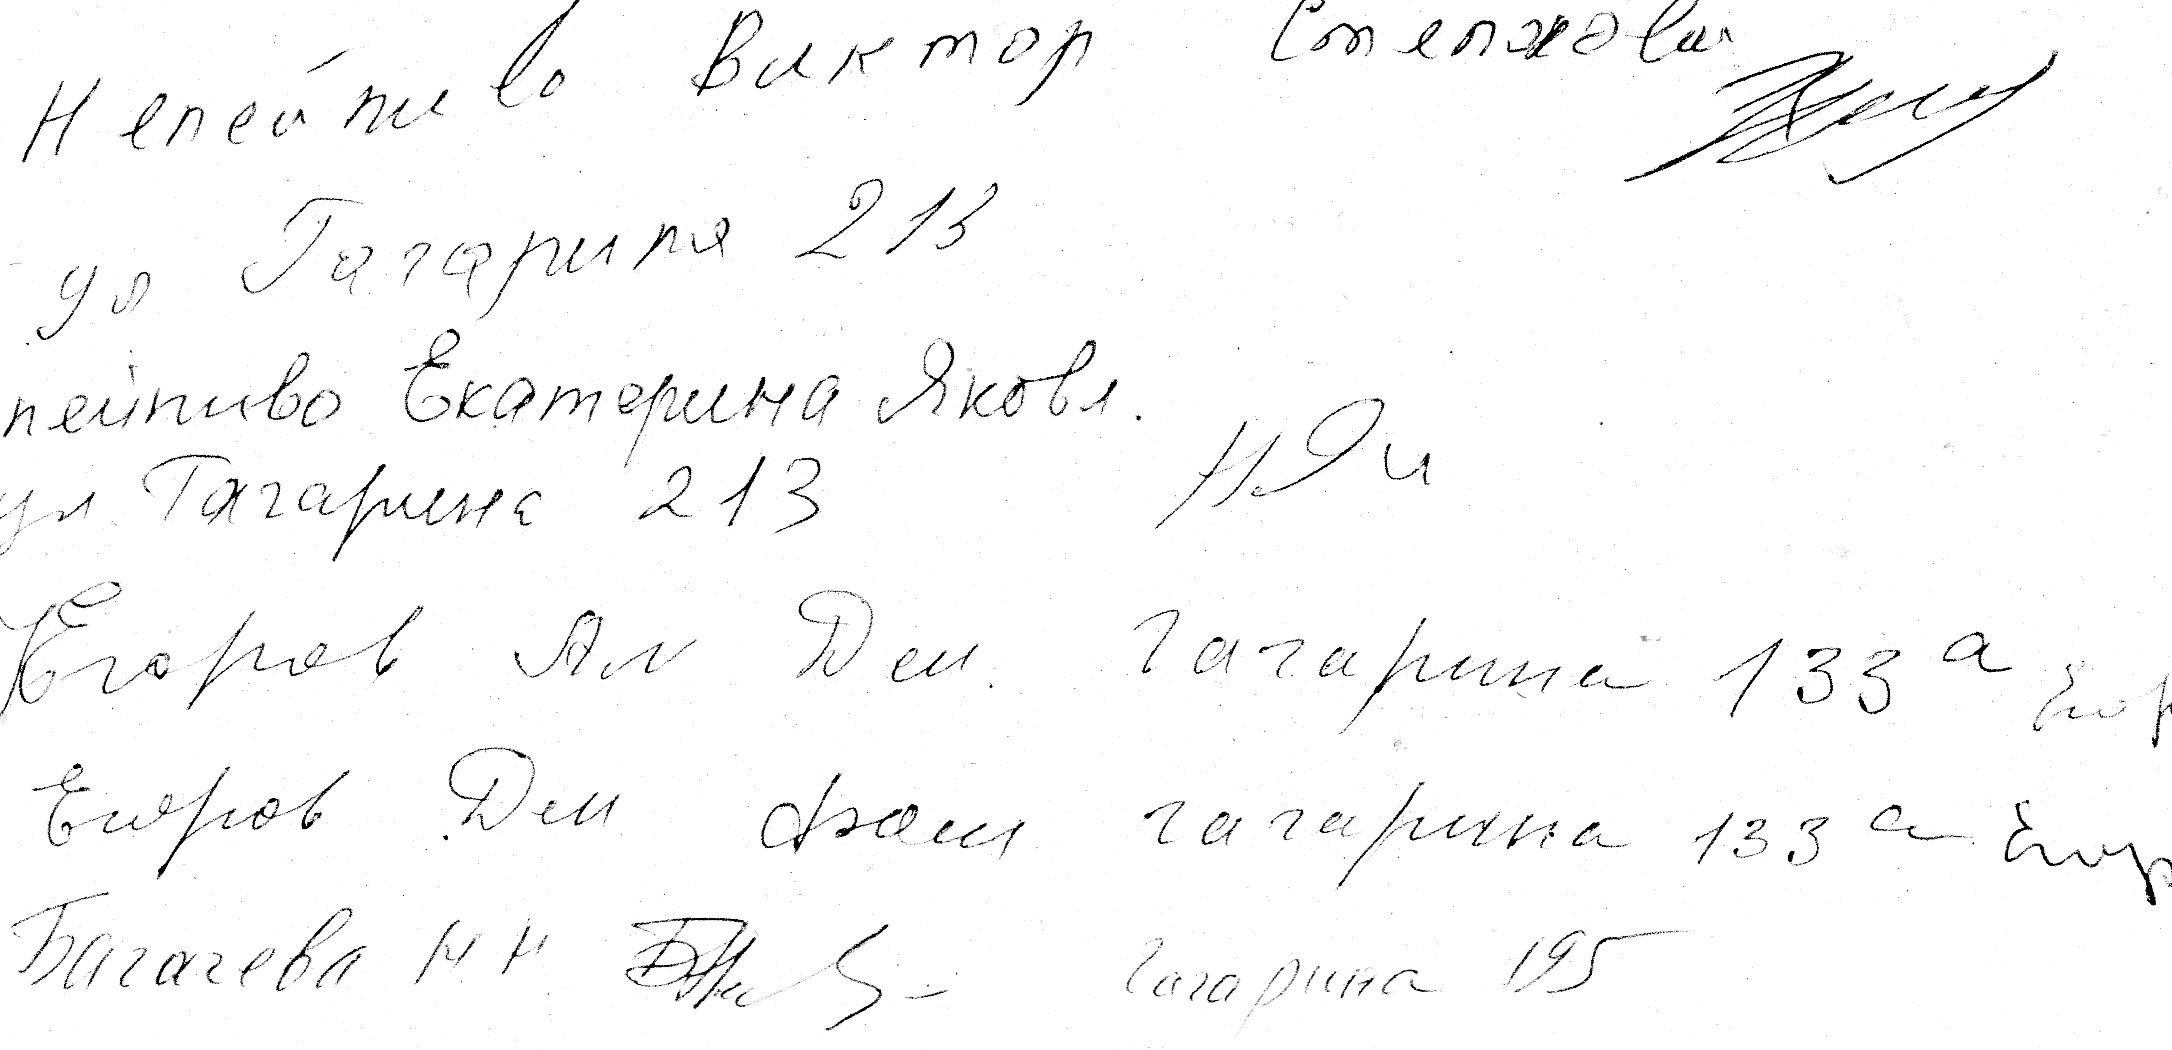 Непейпиво Виктор
ул Гагарина 213
пейпиво Екатерина Яковл.
ул Гагарина 213
Егоров Ал Ден. Гагарина 133 а Егор
Егоров Ден гагарина 133 а Егор
Багачева Н Н Гагарина 195